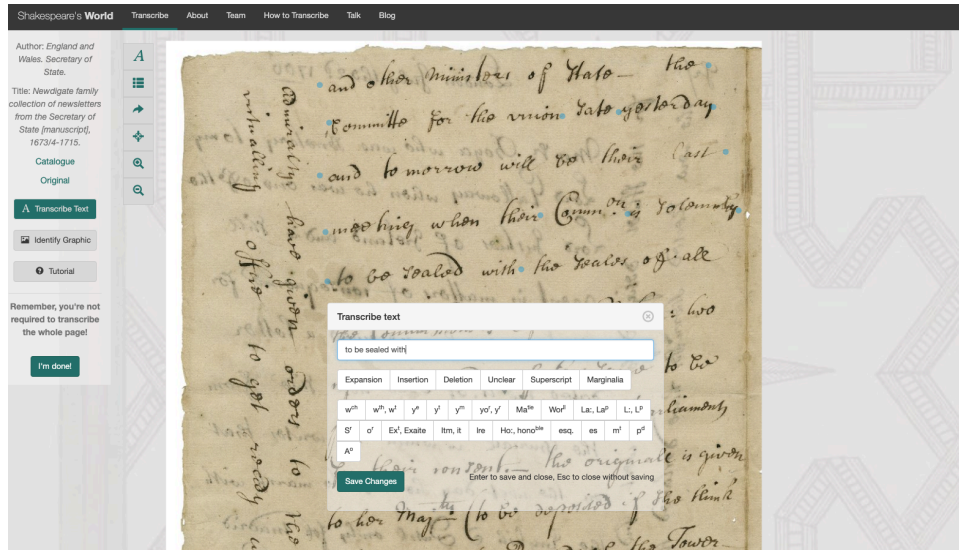 Shakespeare's World
Transcribe
About
Team
How to Transcribe
Talk
Blog
Author: England and
Wales. Secretary of
State.
Title: Newdigate family
collection of newsletters
from the Secretary of
State [manuscript],
1673/4-1715.
Catalogue
Original
A Transcribe Text
Identify Graphic
Tutorial
Remember, you're not
required to transcribe
the whole page!
I'm done!
A
and other Ministers of State— the
Committe for the vnion Sate yesterday
and to morrow will be their last
meeting when their Comm:on is Solemnly
to be Sealed with the Seales of all
two
to be
liament
their consent— the originale is given
to her Maj:ty (to be deposited if she think
the Tower
Admiraltye have given orders to the
victualling office to get ready
Transcribe text
to be sealed with
Expansion
Insertion
Deletion
Unclear
Superscript
Marginalia
wch
wth, wt
ye
yt
ym
yor, yr
Matie
Worll
La:, Lap
L:, Lp
Sr
or
Ext, Exaite
Itm, it
Ire
Ho:, honoble
esq.
es
mt
pd
Ao
Save Changes
Enter to save and close, Esc to close without saving